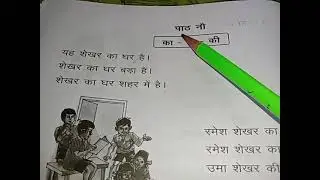 पाठ नौ
का - की
यह शेखर का घर है।
शेखर का घर बड़ा है।
शेखर का घर शहर में है।
रमेश शेखर का
रमेश शेखर का
उमा शेखर की